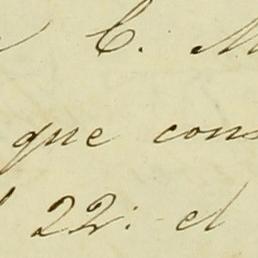 C. M
que cons
22: el